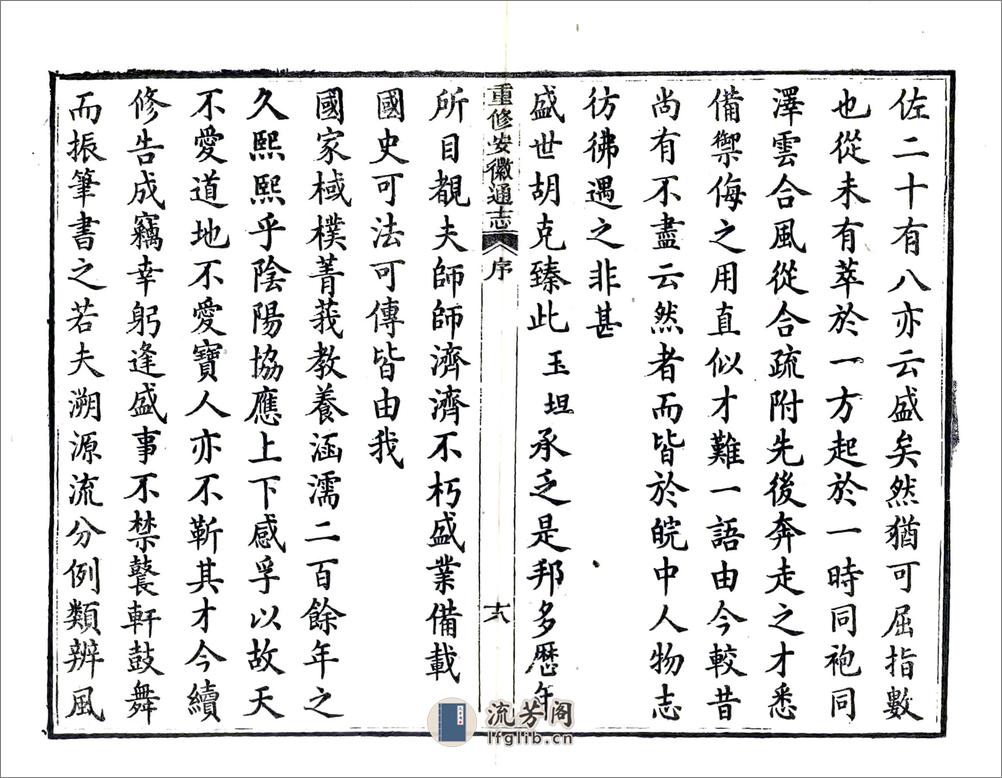 佐二十有八亦云盛矣然猶可屈指數
也從未有萃於一方起於一時同袍同
澤雲合風從合疏附先後奔走之才悉
備禦侮之用直似才難一語由今較昔
尚有不盡云然者而皆於皖中人物志
彷彿遇之非甚
盛世胡克臻此玉坦承乏是邦多歷年
重修安徽通志
序
所目覩夫師師濟濟不朽盛業備載
國史可法可傳皆由我
國家棫樸菁莪教養涵濡二百餘年之
久熙熙乎陰陽協應上下感孚以故天
不愛道地不愛寶人亦不靳其才今續
修告成竊幸躬逢盛事不禁鼚軒鼓舞
而振筆書之若夫溯源流分例類辨風
流芳阁
lfglib.cn